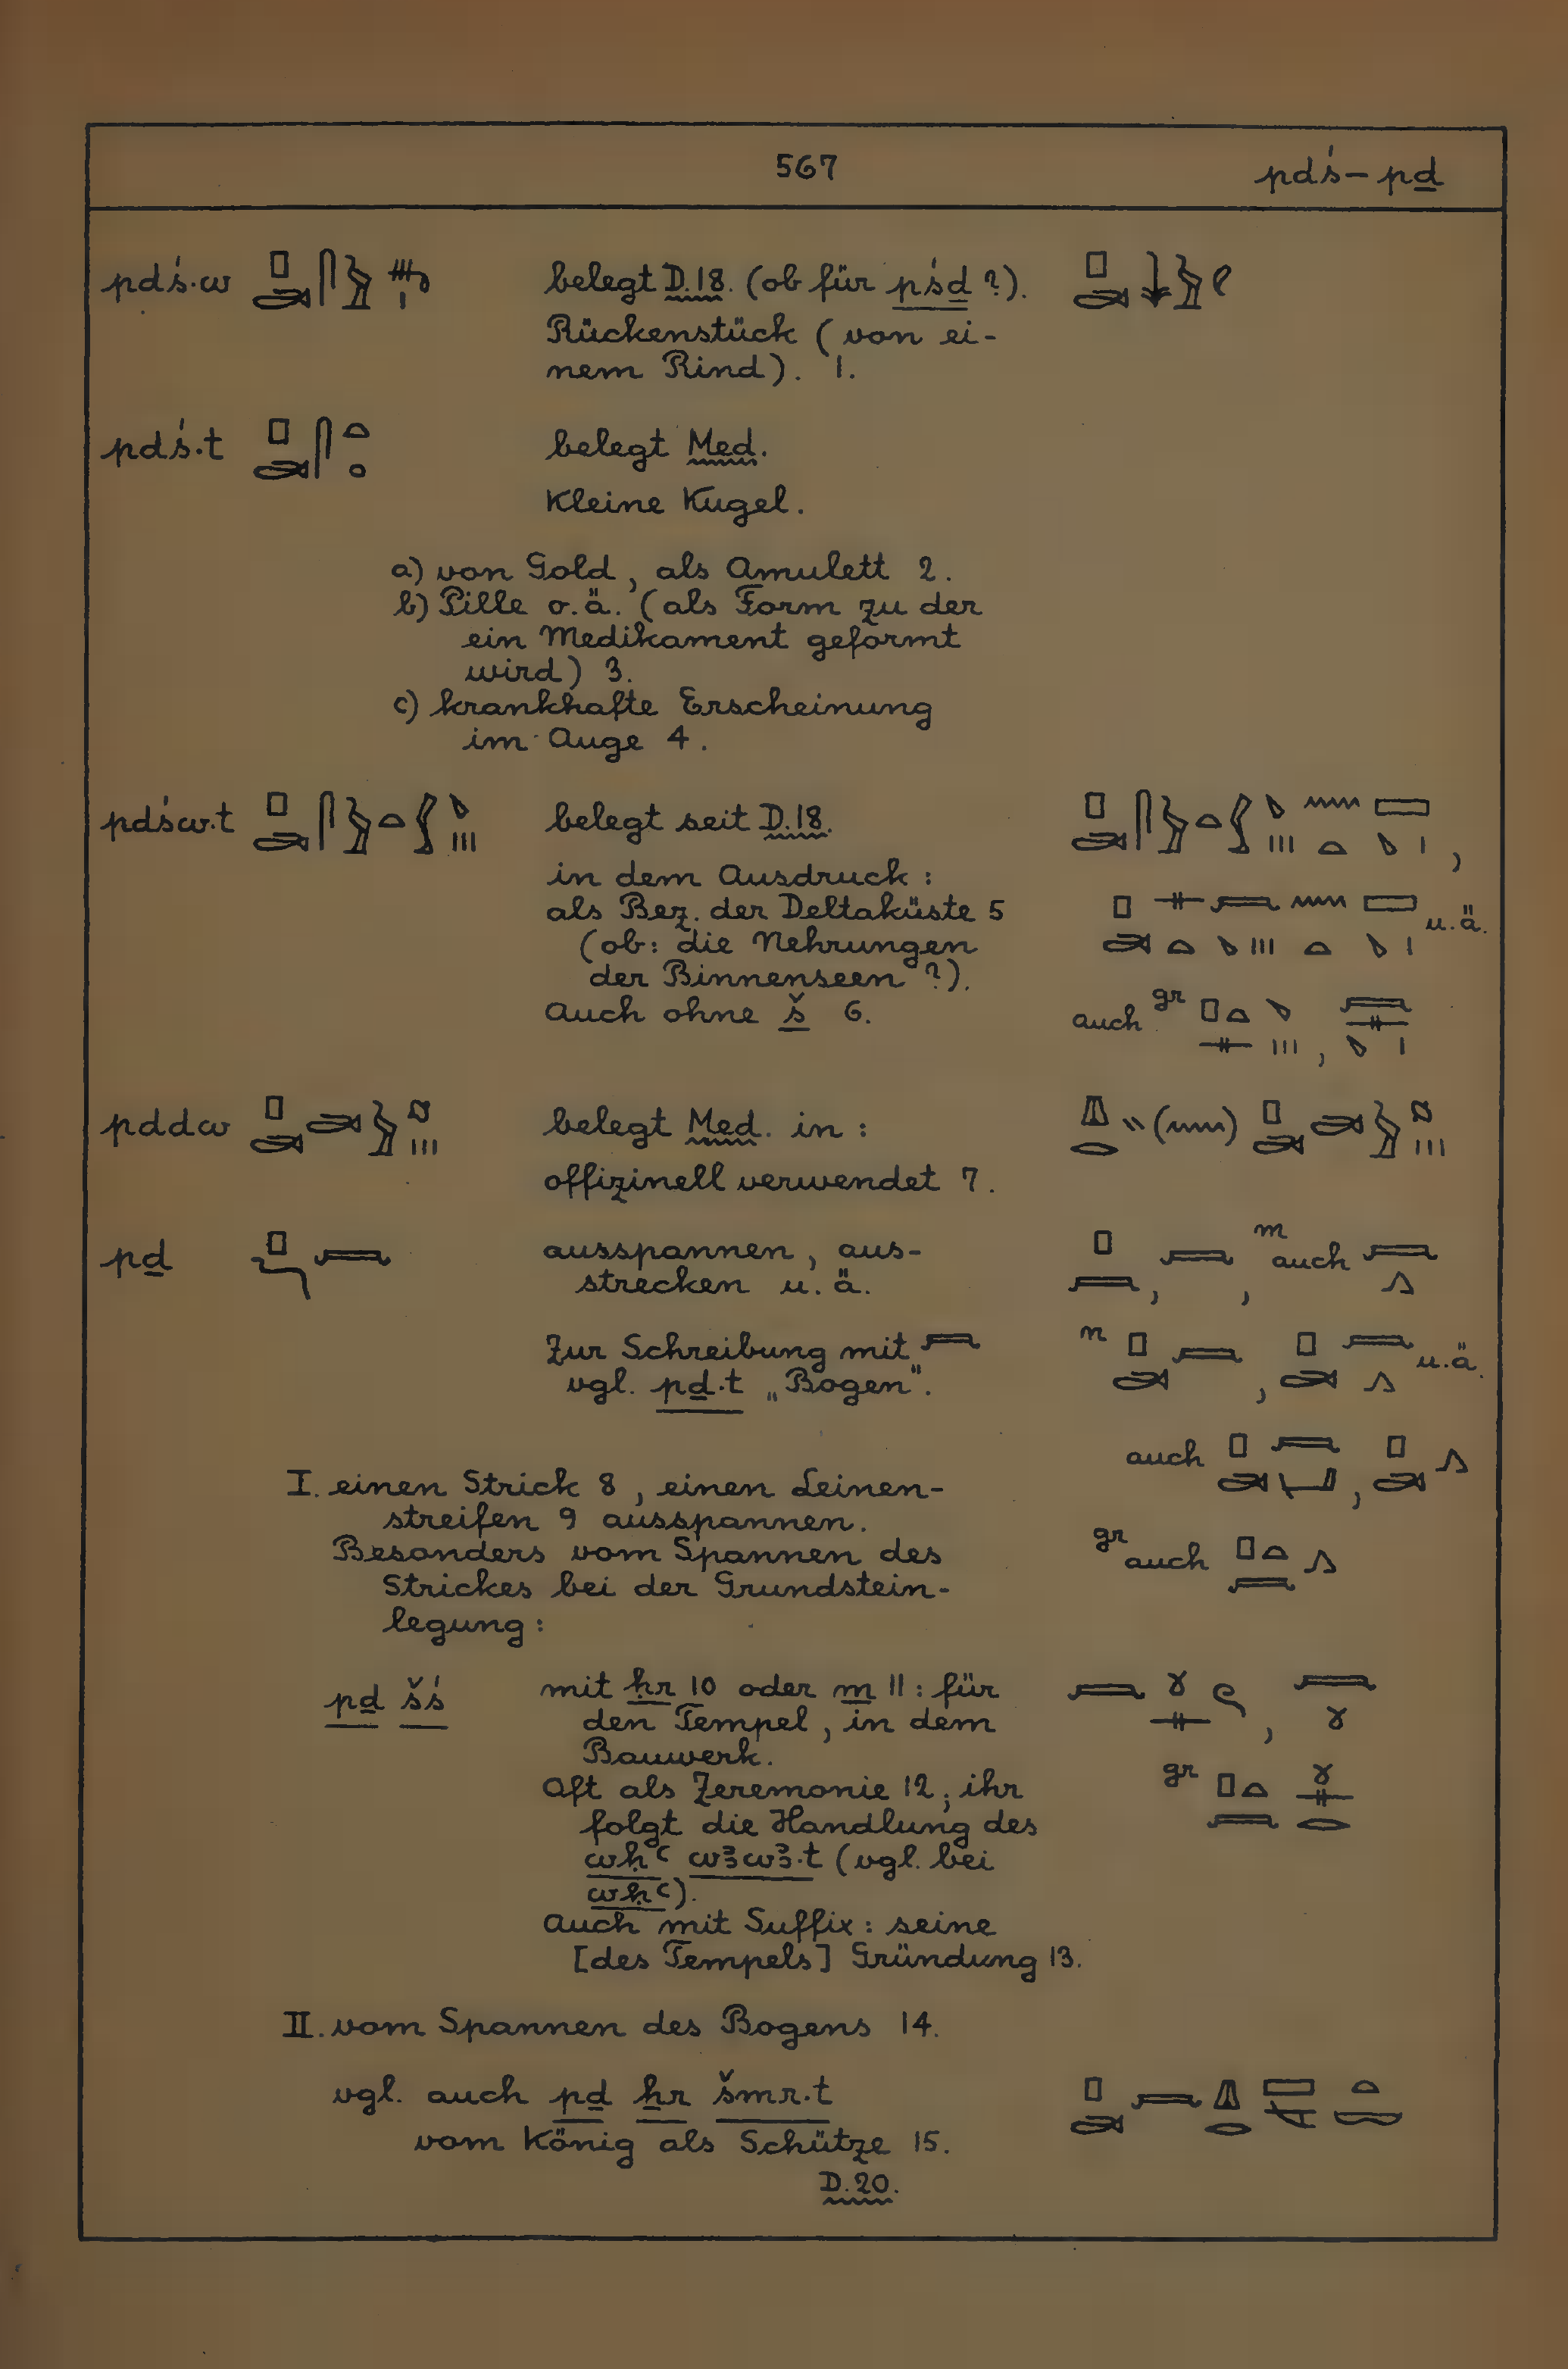 567
pdś – pḏ
pdś·w
belegt D.18. (ob für pśḏ ?).
Rückenstück (von ei-
nem Rind). 1.
pdś·t
belegt Med.
Kleine Kugel.
a) von Gold, als Amulett 2.
b) Pille o.ä. (als Form zu der
ein Medikament geformt
wird) 3.
c) krankhafte Erscheinung
im Auge 4.
pdśw·t
belegt seit D.18.
in dem Ausdruck:
als Bez. der Deltaküste 5
(ob: die Nehrungen
der Binnenseen ?).
Auch ohne š 6.
u.ä.
auch gr
pddw
belegt Med. in:
offizinell verwendet 7.
pḏ
ausspannen, aus-
strecken u. ä.
m auch
Zur Schreibung mit
vgl. pḏ·t „Bogen".
n
u.ä.
auch
I. einen Strick 8, einen Leinen-
streifen 9 ausspannen.
Besonders vom Spannen des
Strickes bei der Grundstein-
legung:
gr auch
pḏ šś
mit ḥr 10 oder m 11: für
den Tempel, in dem
Bauwerk.
Oft als Zeremonie 12; ihr
folgt die Handlung des
wḥꜥ wꜣwꜣ·t (vgl. bei
wḥꜥ).
Auch mit Suffix: seine
[des Tempels] Gründung 13.
gr
II. vom Spannen des Bogens 14.
vgl. auch pḏ ẖr šmr·t
vom König als Schütze 15.
D.20.